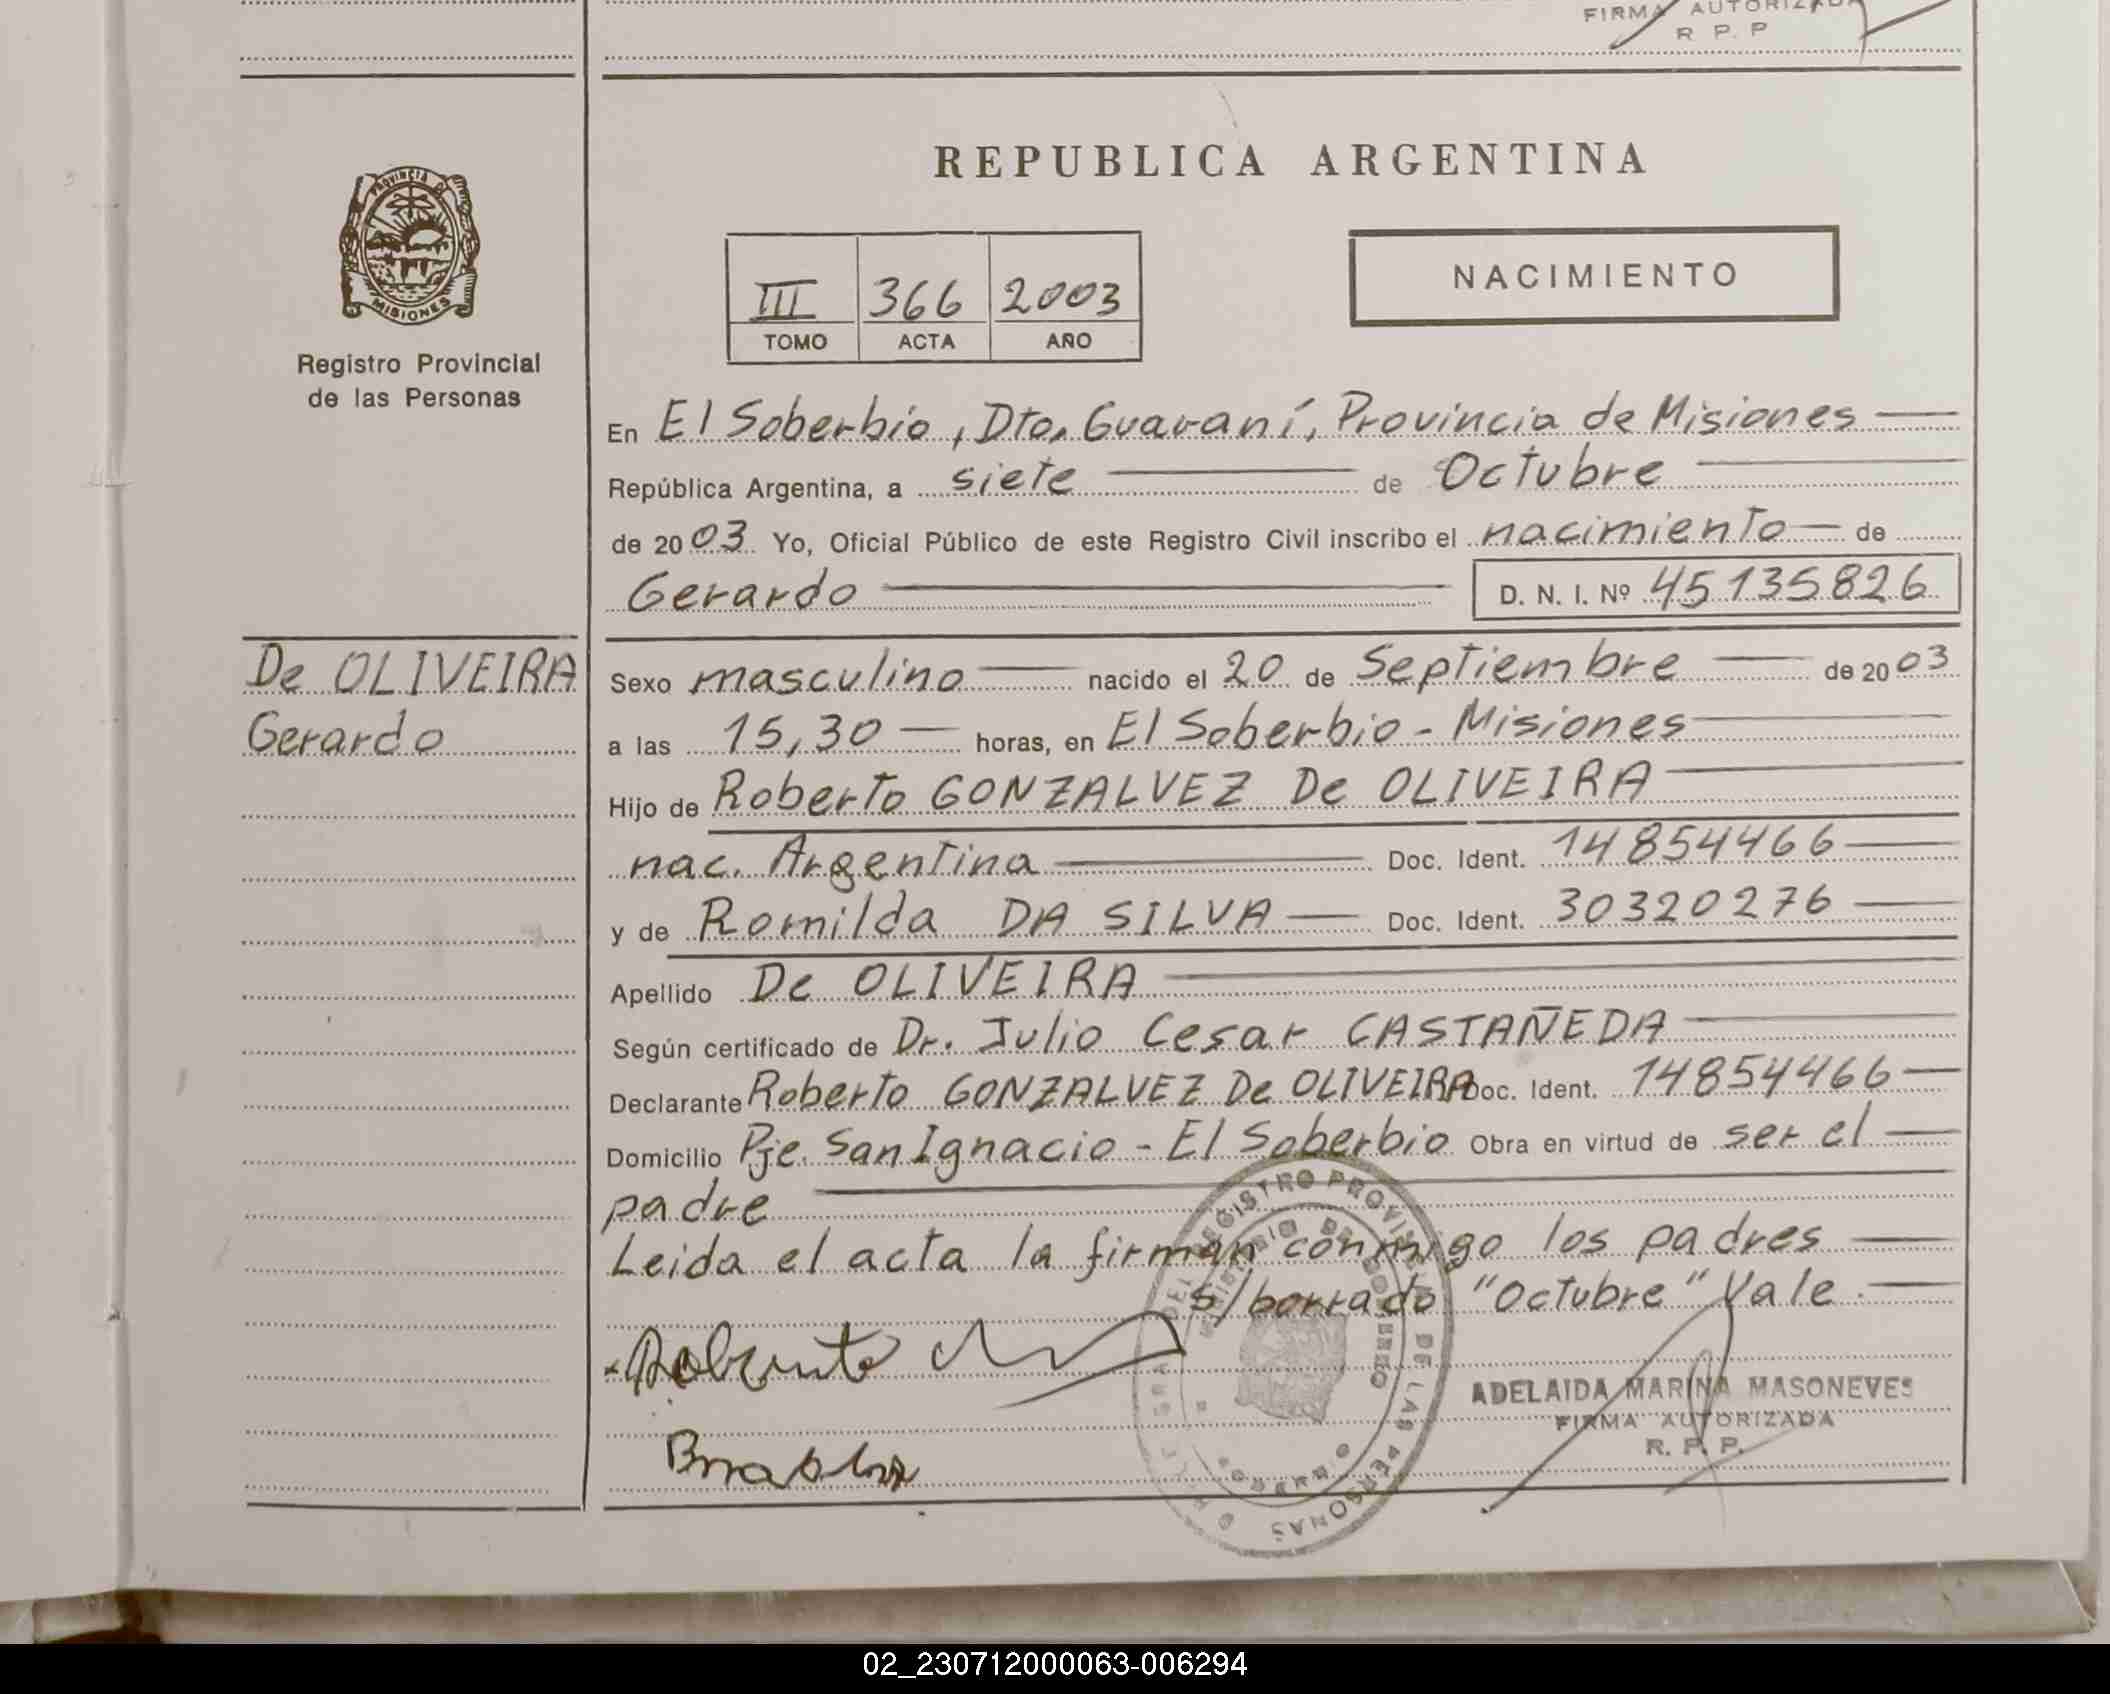 FIRMA AUTORIZADA
R. P. P
PROVINCIA DE
MISIONES
Registro Provincial
de las Personas
REPUBLICA ARGENTINA
III 366 2003
TOMO ACTA AÑO
NACIMIENTO
En El Soberbio, Dto. Guaraní, Provincia de Misiones
República Argentina, a siete de Octubre
de 2003 Yo, Oficial Público de este Registro Civil inscribo el nacimiento de
Gerardo D. N. I. Nº 45135826
De OLIVEIRA
Gerardo
Sexo masculino nacido el 20 de Septiembre de 2003
a las 15,30 horas, en El Soberbio - Misiones
Hijo de Roberto GONZALVEZ De OLIVEIRA
nac. Argentina Doc. Ident. 14854466
y de Romilda DA SILVA Doc. Ident. 30320276
Apellido De OLIVEIRA
Según certificado de Dr. Julio Cesar CASTAÑEDA
Declarante Roberto GONZALVEZ De OLIVEIRA Doc. Ident. 14854466
Domicilio Pje. San Ignacio - El Soberbio Obra en virtud de ser el
padre
Leida el acta la firman conmigo los padres
s/borrado "Octubre" Vale.
Roberto
REGISTRO PROVINCIAL DE LAS PERSONAS
MINISTERIO DE GOBIERNO
ADELAIDA MARINA MASONEVES
FIRMA AUTORIZADA
R. P. P.
02_230712000063-006294